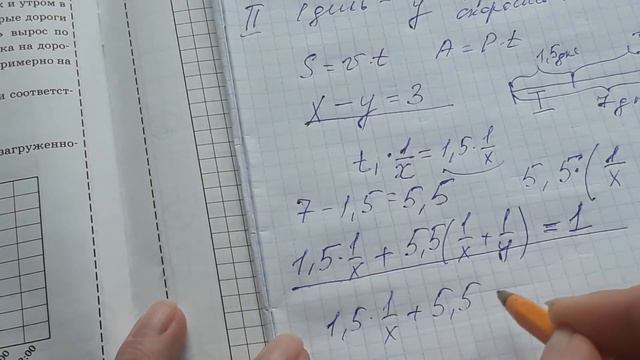 к и утром в
рые дороги
вырос по
ка на доро-
римерно на
и соответст-
загруженно-
:00
II
S = v · t
A = P · t
x - y = 3
1,5 дня
I
7 дн
t₁ · 1/x = 1,5 · 1/x
7 - 1,5 = 5,5
5,5 · (1/x
1,5 · 1/x + 5,5(1/x + 1/y) = 1
1,5 · 1/x + 5,5